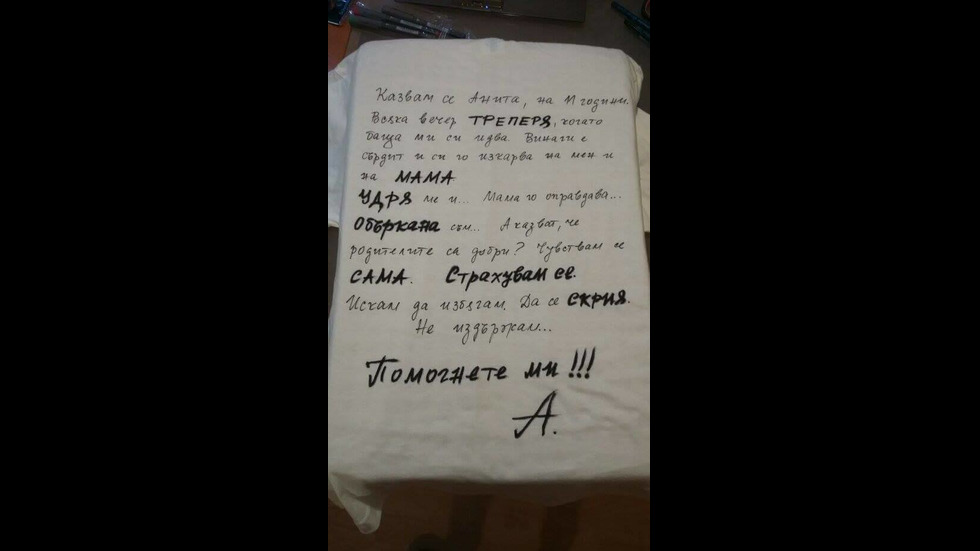 Казвам се Анита, на 11 години.
Всяка вечер ТРЕПЕРЯ, когато
баща ми си идва. Винаги е
сърдит и си го изкарва на мен и
на МАМА
УДРЯ ме и... Мама го оправдава...
Объркана съм... А казват, че
родителите са добри? Чувствам се
САМА. Страхувам се.
Искам да избягам. Да се СКРИЯ.
Не издържам...
Помогнете ми!!!
А.